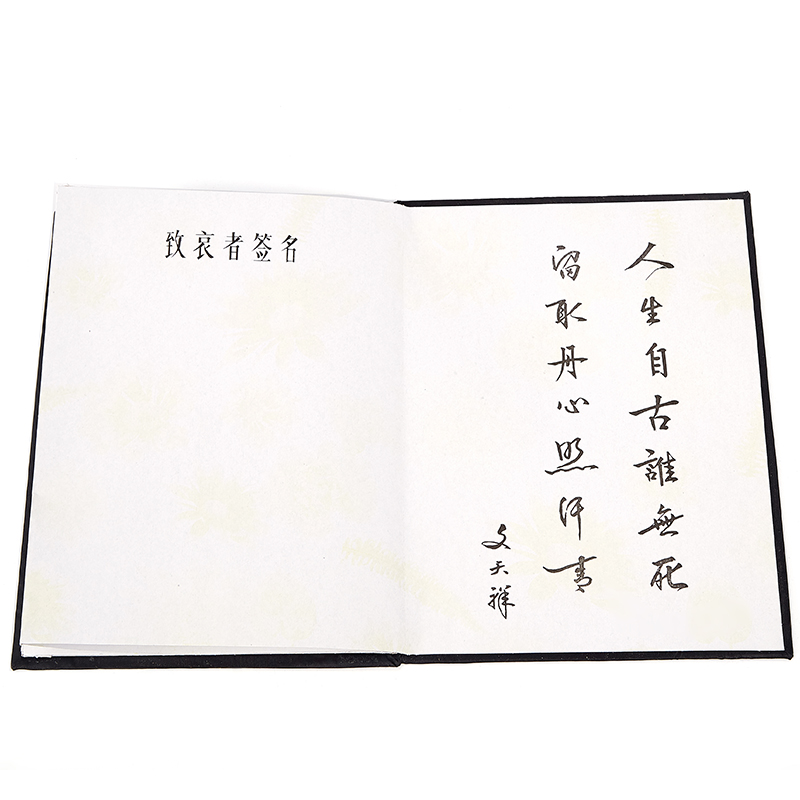 致哀者签名
人生自古誰無死
留取丹心照汗青
文天祥